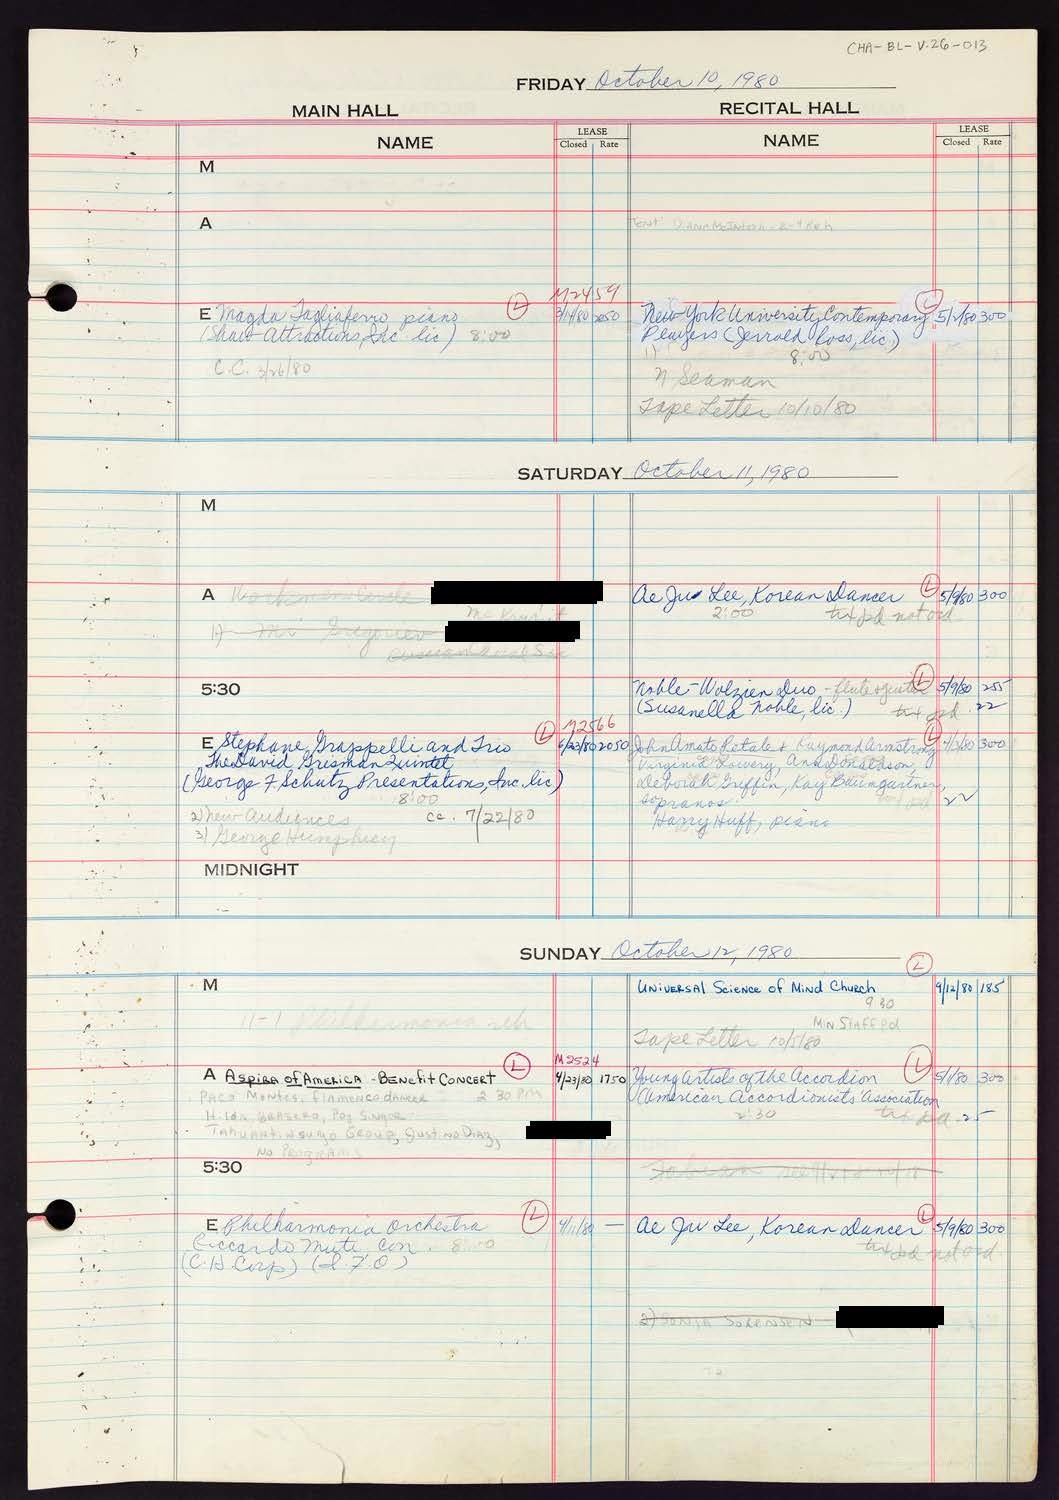 CHA-BL-V.26-013
FRIDAY October 10, 1980
MAIN HALL
NAME
LEASE
Closed Rate
M
A
M2459
E Magda Tagliaferro piano (L) 3/14/80 2050
(Shaw Attractions, Inc. lic) 8:00
C.C. 3/26/80
RECITAL HALL
NAME
LEASE
Closed Rate
Tent
New York University Contemporary (L) 5/2/80 300
Players (Jerrold Ross, lic.)
8:00
N Seaman
Tape Letter 10/10/80
SATURDAY October 11, 1980
M
A Workmen's Circle
1) Mr Gregoriev
5:30
M2566
E Stephane Grappelli and Trio (L) 6/23/80 2050
The David Grisman Quintet
(George F Schutz Presentations, Inc. lic)
8:00
2) New Audiences cc. 7/22/80
3) George Humphrey
MIDNIGHT
Ae Ju Lee, Korean Dancer (L) 5/9/80 300
2:00 txt pd not ord
Noble-Wolzien Duo - flute & guitar (L) 5/9/80 255
(Susanella Noble, lic.) txt pd .22
John Amato Petale & Raymond Armstrong (L) 300
Virginia Lowery, Ann Donaldson,
Deborah Griffin, Kay Baumgartner,
sopranos 22
Harry Huff, piano
SUNDAY October 12, 1980
M
11-1 Philharmonia reh
M2524
A Aspira of America - Benefit Concert (L) 4/23/80 1750
Paco Montes, Flamenco dancer 2 30 PM
Tahuantinsuyo Group, Justino Diaz,
No Programs
5:30
E Philharmonia Orchestra (L) 4/11/80 —
Riccardo Muti, Con. 8:00
(C.H. Corp) (I.F.O)
(L)
Universal Science of Mind Church 9/12/80 185
9 30
Min Staff pd
Tape Letter 10/5/80
Young Artists of the Accordion (L) 5/1/80 300
(American Accordionists Association
2:30 txt pd .25
Ae Ju Lee, Korean Dancer (L) 5/9/80 300
txt pd not ord
2) Sonia Sorensen